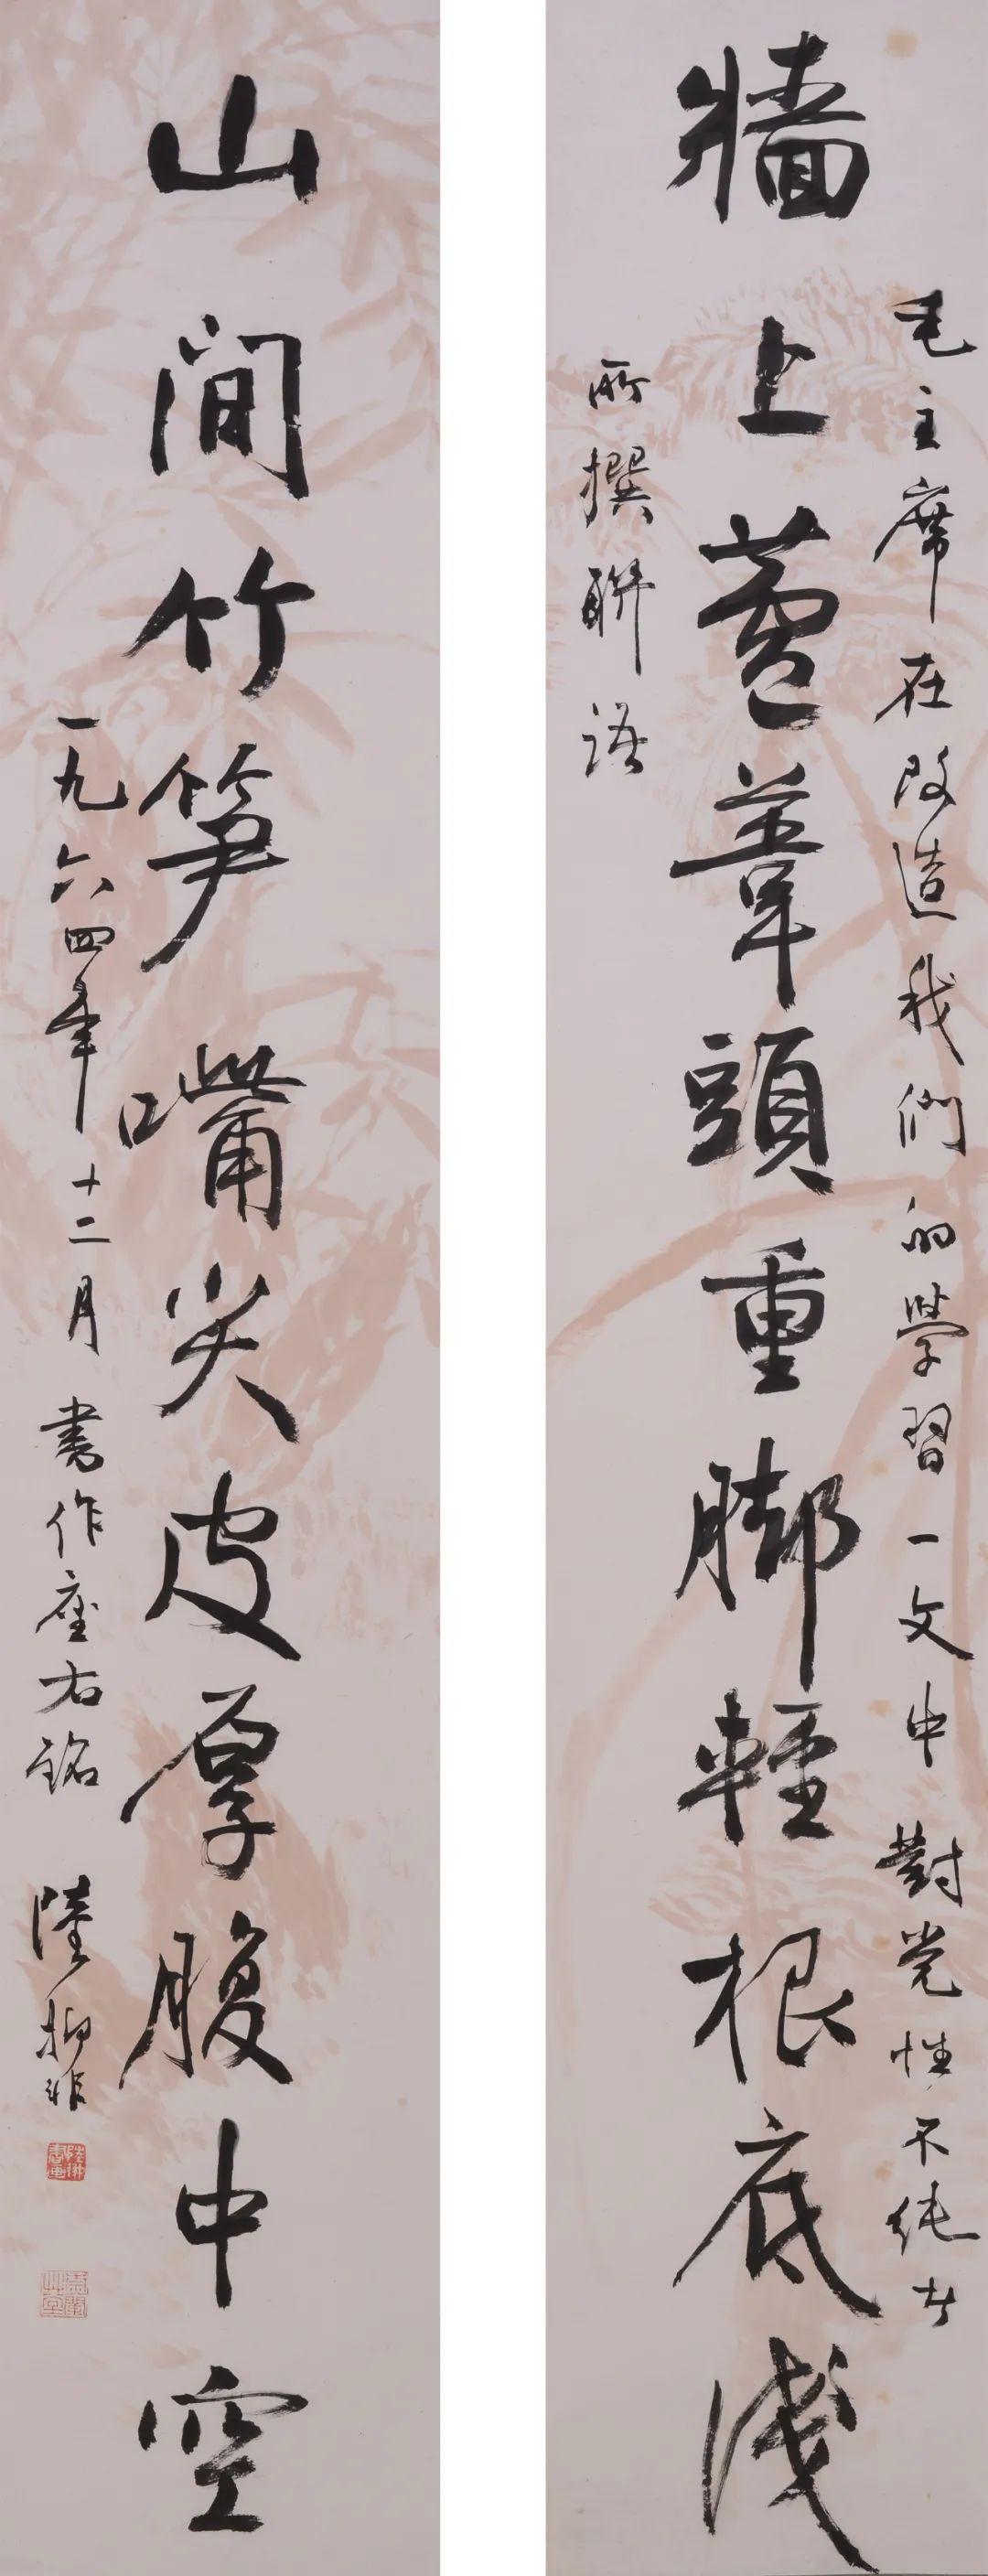 毛主席在改造我們的學習一文中對党性不純者
牆上蘆葦頭重脚輕根底淺
所撰聯語
山間竹笋嘴尖皮厚腹中空
一九六四年十二月書作座右銘 陸抑非